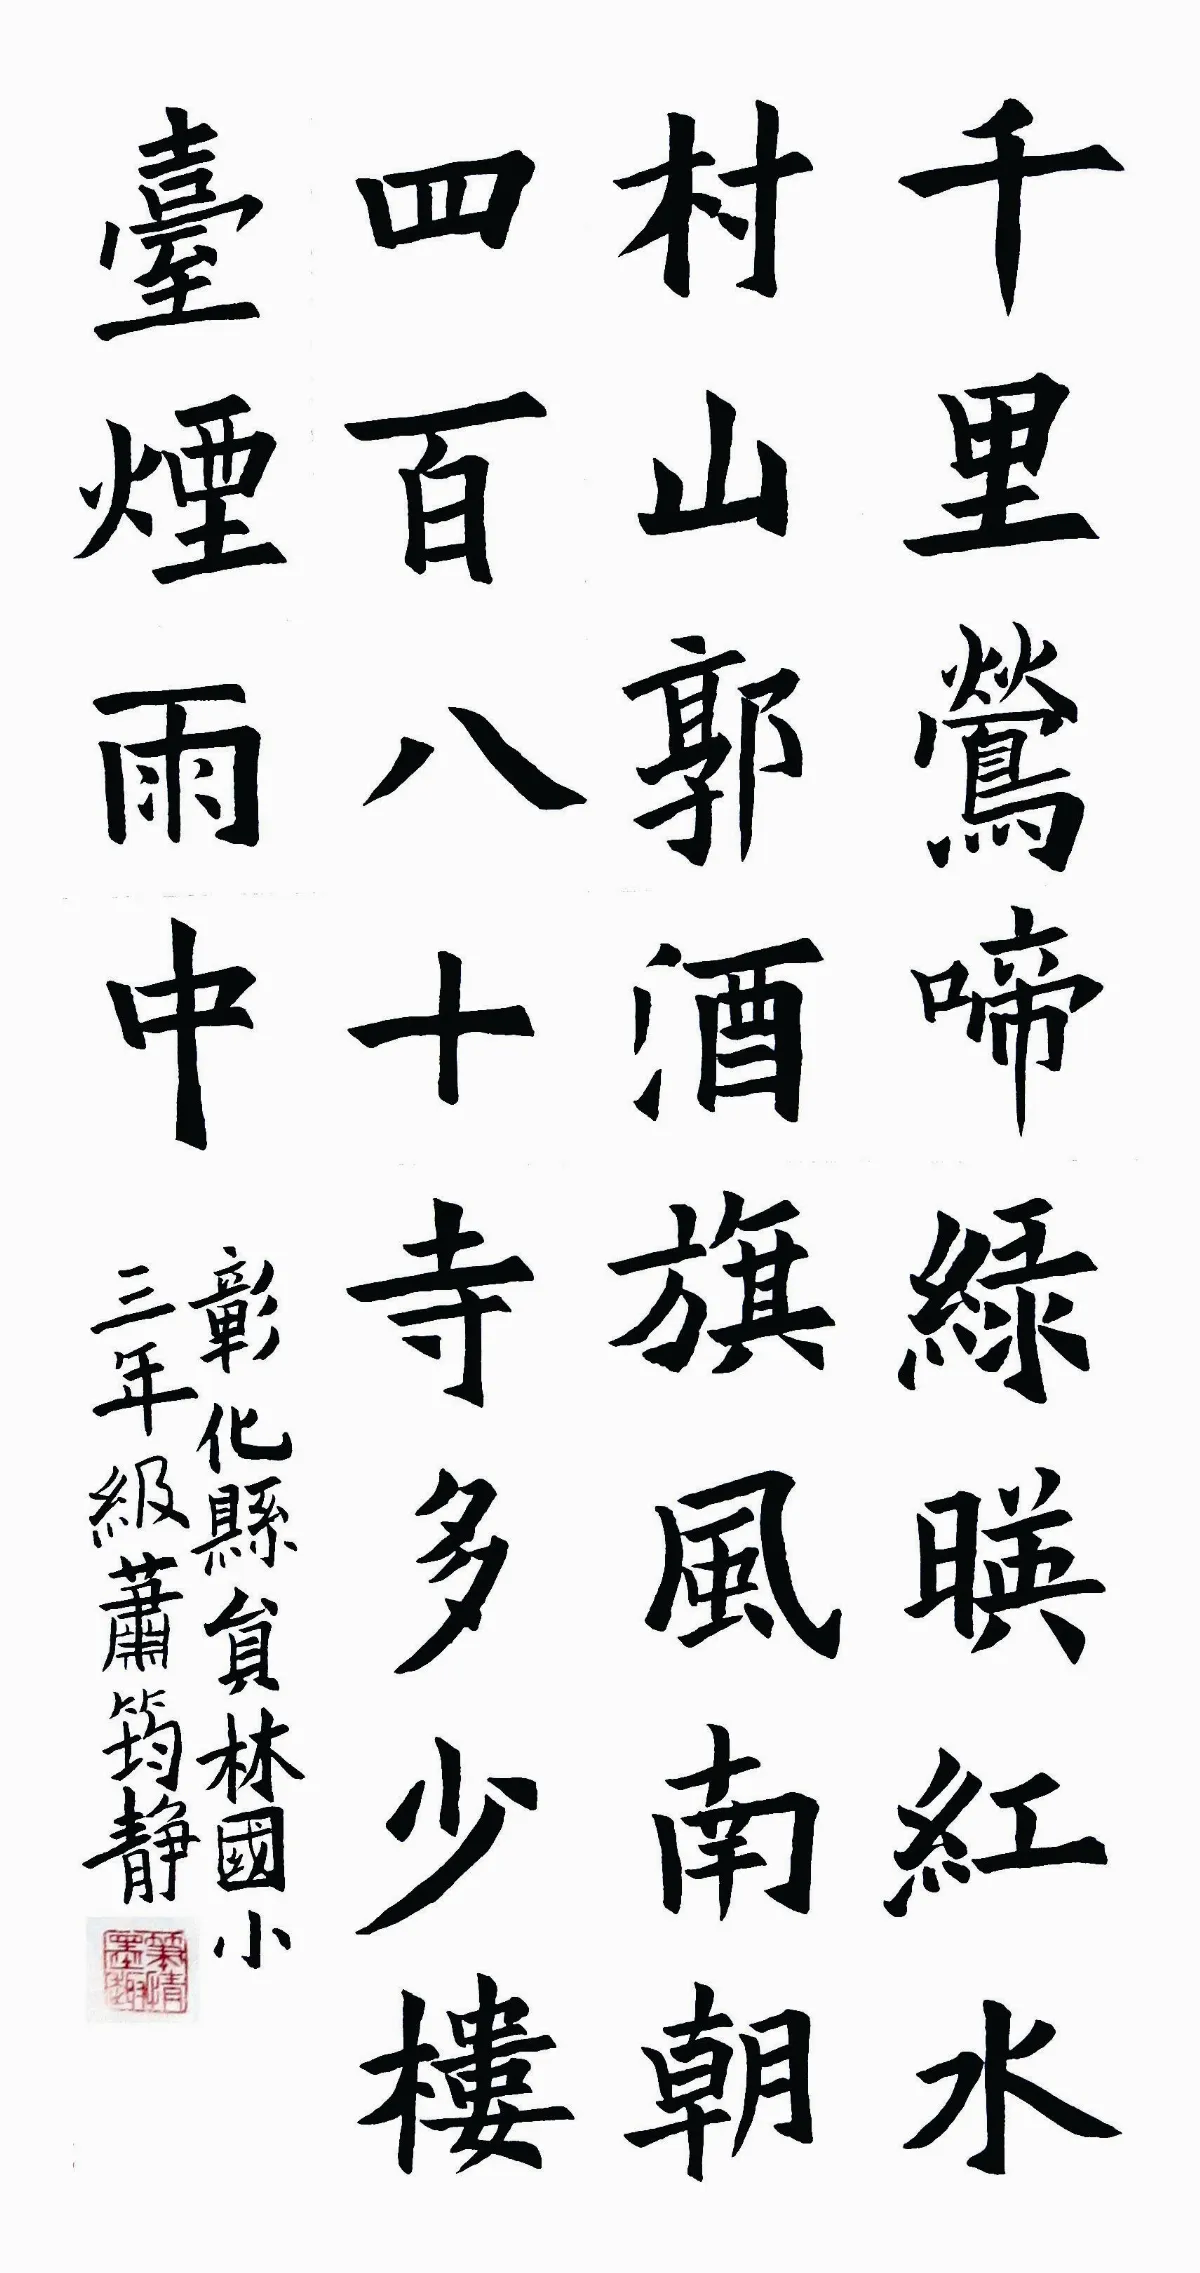 千里鶯啼綠暎紅水
村山郭酒旗風南朝
四百八十寺多少樓
臺煙雨中
彰化縣員林國小
三年級蕭筠靜
筆情墨趣